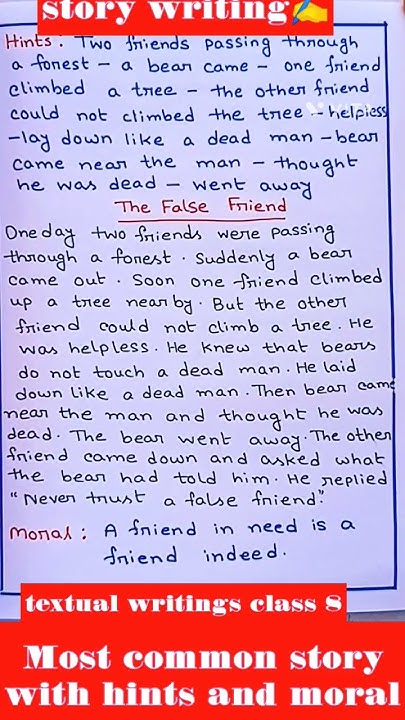 story writing✍️
Hints : Two friends passing through
a forest – a bear came – one friend
climbed a tree – the other friend
could not climbed the tree – helpless
– lay down like a dead man – bear
came near the man – thought
he was dead – went away
The False Friend
One day two friends were passing
through a forest. Suddenly a bear
came out. Soon one friend climbed
up a tree nearby. But the other
friend could not climb a tree. He
was helpless. He knew that bears
do not touch a dead man. He laid
down like a dead man. Then bear came
near the man and thought he was
dead. The bear went away. The other
friend came down and asked what
the bear had told him. He replied
"Never trust a false friend."
Moral : A friend in need is a
friend indeed.
textual writings class 8
Most common story
with hints and moral